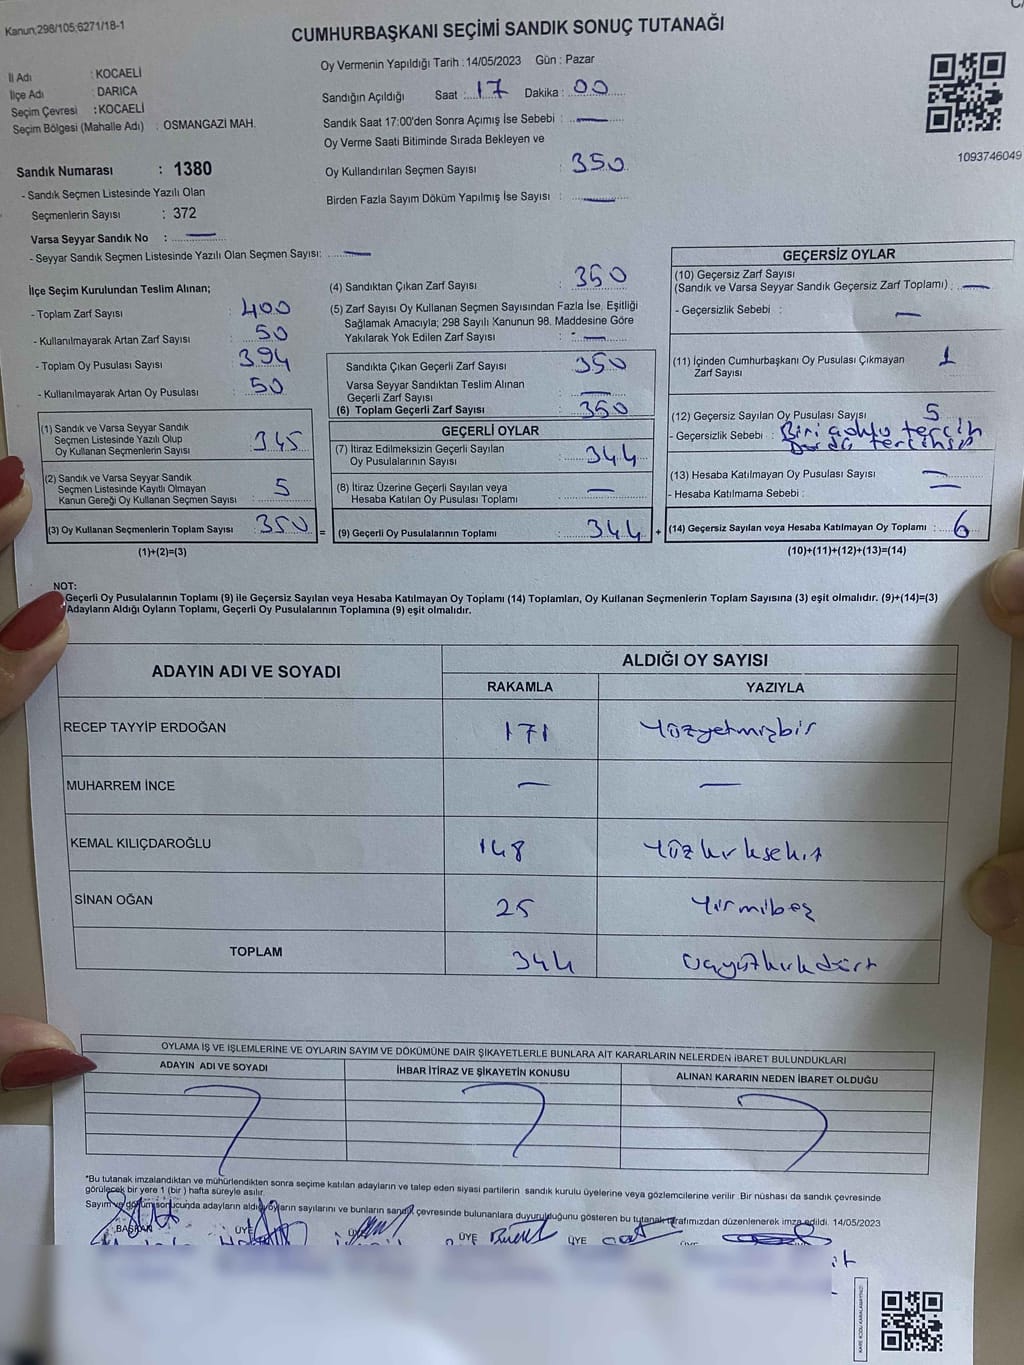 Kanun,298/105,6271/18-1
CUMHURBAŞKANI SEÇİMİ SANDIK SONUÇ TUTANAĞI
İl Adı : KOCAELİ
İlçe Adı : DARICA
Seçim Çevresi : KOCAELİ
Seçim Bölgesi (Mahalle Adı) : OSMANGAZİ MAH.
Oy Vermenin Yapıldığı Tarih : 14/05/2023 Gün : Pazar
Sandığın Açıldığı Saat : 17 Dakika : 00
Sandık Saat 17:00'den Sonra Açımış İse Sebebi : —
Oy Verme Saati Bitiminde Sırada Bekleyen ve
Oy Kullandırılan Seçmen Sayısı : 350
Birden Fazla Sayım Döküm Yapılmış İse Sayısı : —
1093746049
Sandık Numarası : 1380
- Sandık Seçmen Listesinde Yazılı Olan
Seçmenlerin Sayısı : 372
Varsa Seyyar Sandık No : —
- Seyyar Sandık Seçmen Listesinde Yazılı Olan Seçmen Sayısı: —
İlçe Seçim Kurulundan Teslim Alınan;
- Toplam Zarf Sayısı : 400
- Kullanılmayarak Artan Zarf Sayısı : 50
- Toplam Oy Pusulası Sayısı : 394
- Kullanılmayarak Artan Oy Pusulası : 50
(1) Sandık ve Varsa Seyyar Sandık
Seçmen Listesinde Yazılı Olup
Oy Kullanan Seçmenlerin Sayısı : 345
(2) Sandık ve Varsa Seyyar Sandık
Seçmen Listesinde Kayıtlı Olmayan
Kanun Gereği Oy Kullanan Seçmen Sayısı : 5
(3) Oy Kullanan Seçmenlerin Toplam Sayısı : 350 =
(1)+(2)=(3)
(4) Sandıktan Çıkan Zarf Sayısı : 350
(5) Zarf Sayısı Oy Kullanan Seçmen Sayısından Fazla İse, Eşitliği
Sağlamak Amacıyla; 298 Sayılı Kanunun 98. Maddesine Göre
Yakılarak Yok Edilen Zarf Sayısı : —
Sandıkta Çıkan Geçerli Zarf Sayısı : 350
Varsa Seyyar Sandıktan Teslim Alınan
Geçerli Zarf Sayısı : —
(6) Toplam Geçerli Zarf Sayısı : 350
GEÇERLİ OYLAR
(7) İtiraz Edilmeksizin Geçerli Sayılan
Oy Pusulalarının Sayısı : 344
(8) İtiraz Üzerine Geçerli Sayılan veya
Hesaba Katılan Oy Pusulası Toplamı : —
(9) Geçerli Oy Pusulalarının Toplamı : 344 +
GEÇERSİZ OYLAR
(10) Geçersiz Zarf Sayısı
(Sandık ve Varsa Seyyar Sandık Geçersiz Zarf Toplamı) : —
- Geçersizlik Sebebi : —
(11) İçinden Cumhurbaşkanı Oy Pusulası Çıkmayan
Zarf Sayısı 1
(12) Geçersiz Sayılan Oy Pusulası Sayısı 5
- Geçersizlik Sebebi : Biri tercih
(13) Hesaba Katılmayan Oy Pusulası Sayısı : —
- Hesaba Katılmama Sebebi : —
(14) Geçersiz Sayılan veya Hesaba Katılmayan Oy Toplamı : 6
(10)+(11)+(12)+(13)=(14)
NOT:
Geçerli Oy Pusulalarının Toplamı (9) ile Geçersiz Sayılan veya Hesaba Katılmayan Oy Toplamı (14) Toplamları, Oy Kullanan Seçmenlerin Toplam Sayısına (3) eşit olmalıdır. (9)+(14)=(3)
Adayların Aldığı Oyların Toplamı, Geçerli Oy Pusulalarının Toplamına (9) eşit olmalıdır.
ADAYIN ADI VE SOYADI
ALDIĞI OY SAYISI
RAKAMLA YAZIYLA
RECEP TAYYİP ERDOĞAN 171 Yüzyetmişbir
MUHARREM İNCE — —
KEMAL KILIÇDAROĞLU 148 Yüzkırksekiz
SİNAN OĞAN 25 Yirmibeş
TOPLAM 344 Üçyüzkırkdört
OYLAMA İŞ VE İŞLEMLERİNE VE OYLARIN SAYIM VE DÖKÜMÜNE DAİR ŞİKAYETLERLE BUNLARA AİT KARARLARIN NELERDEN İBARET BULUNDUKLARI
ADAYIN ADI VE SOYADI İHBAR İTİRAZ VE ŞİKAYETİN KONUSU ALINAN KARARIN NEDEN İBARET OLDUĞU
*Bu tutanak imzalandıktan ve mühürlendikten sonra seçime katılan adayların ve talep eden siyasi partilerin sandık kurulu üyelerine veya gözlemcilerine verilir .Bir nüshası da sandık çevresinde
görülecek bir yere 1 (bir ) hafta süreyle asılır.
Sayım ve döküm sonucunda adayların aldığı oyların sayılarını ve bunların sandık çevresinde bulunanlara duyurulduğunu gösteren bu tutanak tarafımızdan düzenlenerek imza edildi. 14/05/2023
BAŞKAN ÜYE ÜYE ÜYE ÜYE